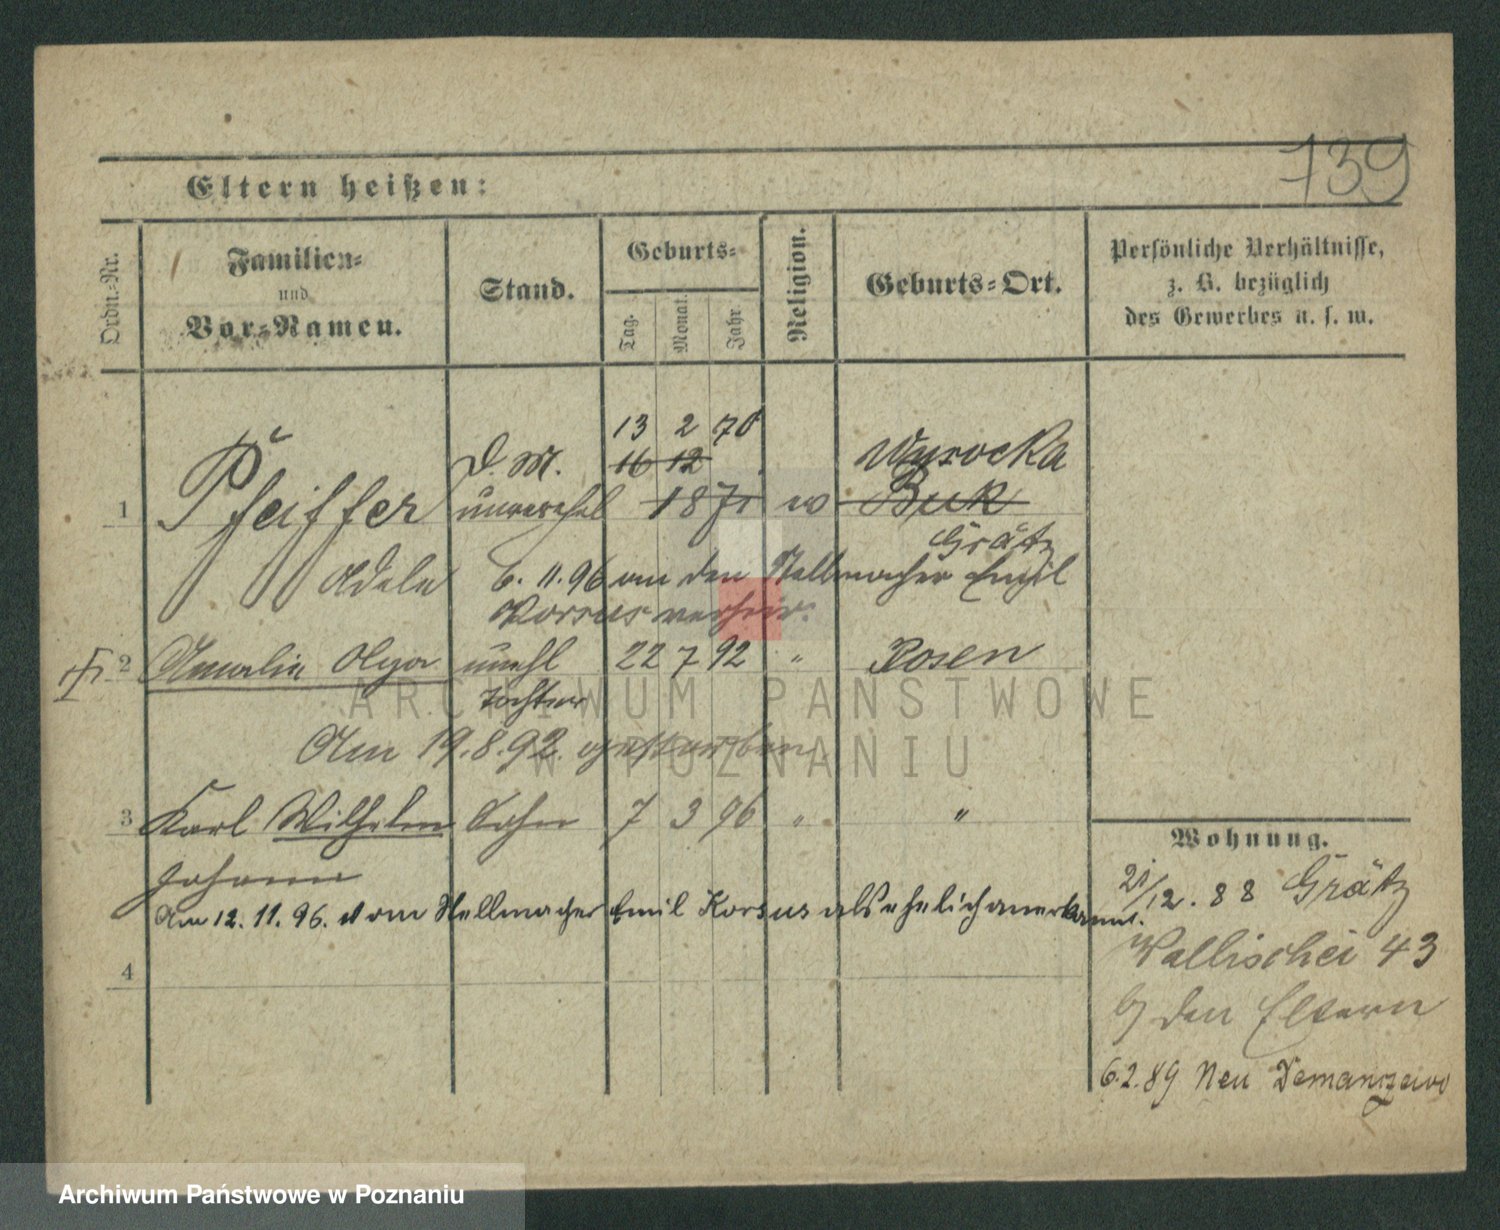 139
Eltern heißen:
Ordn.-Nr.
Familien-
und
Vor-Namen.
Stand.
Geburts-
Tag.
Monat.
Jahr.
Religion.
Geburts-Ort.
Persönliche Verhältnisse,
z. B. bezüglich
des Gewerbes u. s. w.
13 2 70
D. M. 16 12 Wysocka
1 Pfeiffer unverehel 1871 ev Buk
Grätz
Adele 6. 11. 96 an den Stellmacher Emil
Korsus verheir.
2 Amalie Olga unehl 22 7 92 " Posen
Tochter
Am 19.8.92. gestorben
3 Karl Wilhelm Sohn 7 3 96 " "
Johann
Am 12. 11. 96. vom Stellmacher Emil Korsus als ehelich anerkannt.
4
Wohnung.
21/12. 88 Grätz
Wallischei 43
b/ den Eltern
6.2.89 Neu Demanczewo
ARCHIWUM PAŃSTWOWE
W POZNANIU
Archiwum Państwowe w Poznaniu